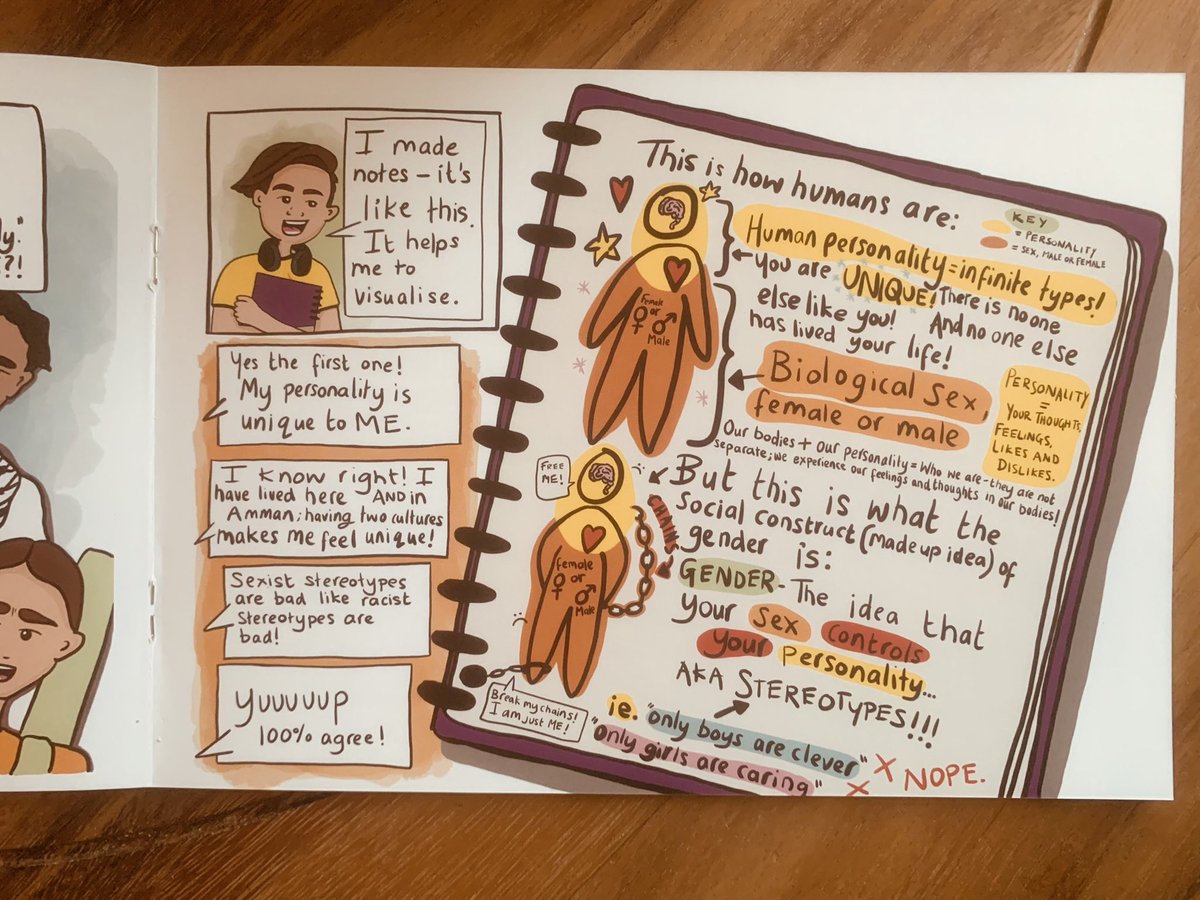 dy."
??!
I made
notes – it's
like this.
It helps
me to
visualise.
Yes the first one!
My personality is
unique to ME.
I know right! I
have lived here AND in
Amman; having two cultures
makes me feel unique!
Sexist stereotypes
are bad like racist
Stereotypes are
bad!
Yuuuuup
100% agree!
This is how humans are:
KEY
= PERSONALITY
= SEX, MALE OR FEMALE
Human personality = infinite types!
You are UNIQUE! There is no one
else like you! And no one else
has lived your life!
Female
or
♀ ♂
Male
Biological Sex,
female or male
PERSONALITY
=
YOUR THOUGHTS,
FEELINGS,
LIKES AND
DISLIKES.
Our bodies + our personality = Who we are – they are not
separate; we experience our feelings and thoughts in our bodies!
FREE
ME!
CHAINS
Female
or
♀ ♂
Male
But this is what the
social construct (made up idea) of
gender is:
GENDER – The idea that
your sex controls
your personality...
AKA STEREOTYPES!!!
Break my chains!
I am just ME!
ie. "only boys are clever" X NOPE.
"only girls are caring" X